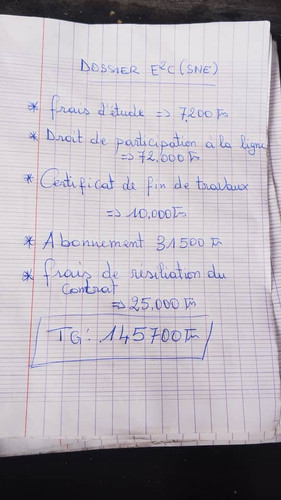 DOSSIER E²C (SNE)
* frais d'étude => 7200 Frs
* Droit de participation à la ligne
=> 72.000 Frs
* Certificat de fin de travaux
=> 10.000 Frs
* Abonnement 31500 Frs
* frais de résiliation du
contrat
=> 25.000 Frs
TG: 145700 Frs